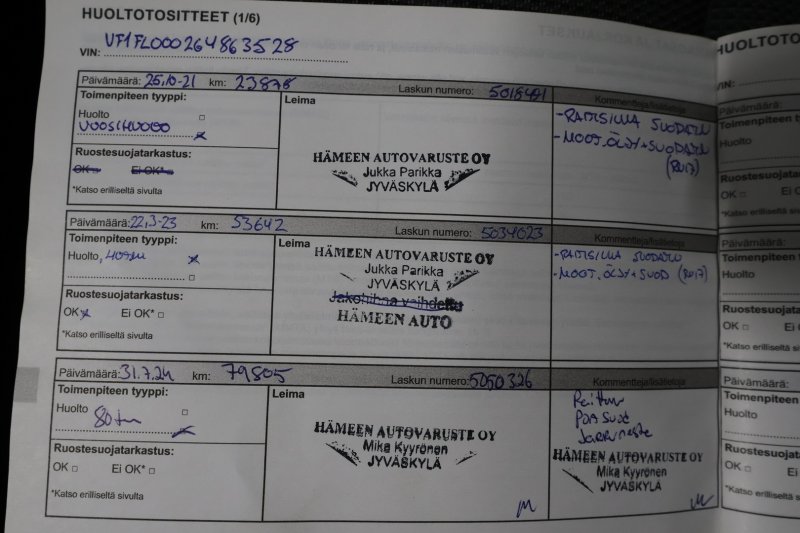 HUOLTOTOSITTEET (1/6)
VIN: VF1FL000264863528
Päivämäärä: 25,10-21 km: 23878 Laskun numero: 5018491 Kommentteja/lisätietoja
Toimenpiteen tyyppi:
Huolto
VUOSIHUOLTO
Ruostesuojatarkastus:
OK Ei OK*
*Katso erilliseltä sivulta
Leima
HÄMEEN AUTOVARUSTE OY
Jukka Parikka
JYVÄSKYLÄ
-RAITISILMA SUODATIN
-MOOT.ÖLJY+SUODATIN
(RN17)
Päivämäärä: 22,3-23 km: 53642 Laskun numero: 5034023 Kommentteja/lisätietoja
Toimenpiteen tyyppi:
Huolto,
Ruostesuojatarkastus:
OK Ei OK*
*Katso erilliseltä sivulta
Leima
HÄMEEN AUTOVARUSTE OY
Jukka Parikka
JYVÄSKYLÄ
Jakohihna vaihdettu
HÄMEEN AUTO
-RAITISILMA SUODATIN
-MOOT.ÖLJY+SUOD (RN17)
Päivämäärä: 31.7.24 km: 79805 Laskun numero: 5050326 Kommentteja/lisätietoja
Toimenpiteen tyyppi:
Huolto
80tkm
Ruostesuojatarkastus:
OK Ei OK*
*Katso erilliseltä sivulta
Leima
HÄMEEN AUTOVARUSTE OY
Mika Kyyrönen
JYVÄSKYLÄ
Raitism
POA Suod
Jarruneste
HÄMEEN AUTOVARUSTE OY
Mika Kyyrönen
JYVÄSKYLÄ
HUOLTOTO
VIN:
Päivämäärä:
Toimenpiteen
Huolto
Ruostesuoja
OK Ei
*Katso erillise
Päivämäärä:
Toimenpiteen
Huolto
Ruostesuoja
OK Ei O
*Katso erillisel
Päivämäärä:
Toimenpiteen
Huolto
Ruostesuojat
OK Ei OK
*Katso erilliseltä